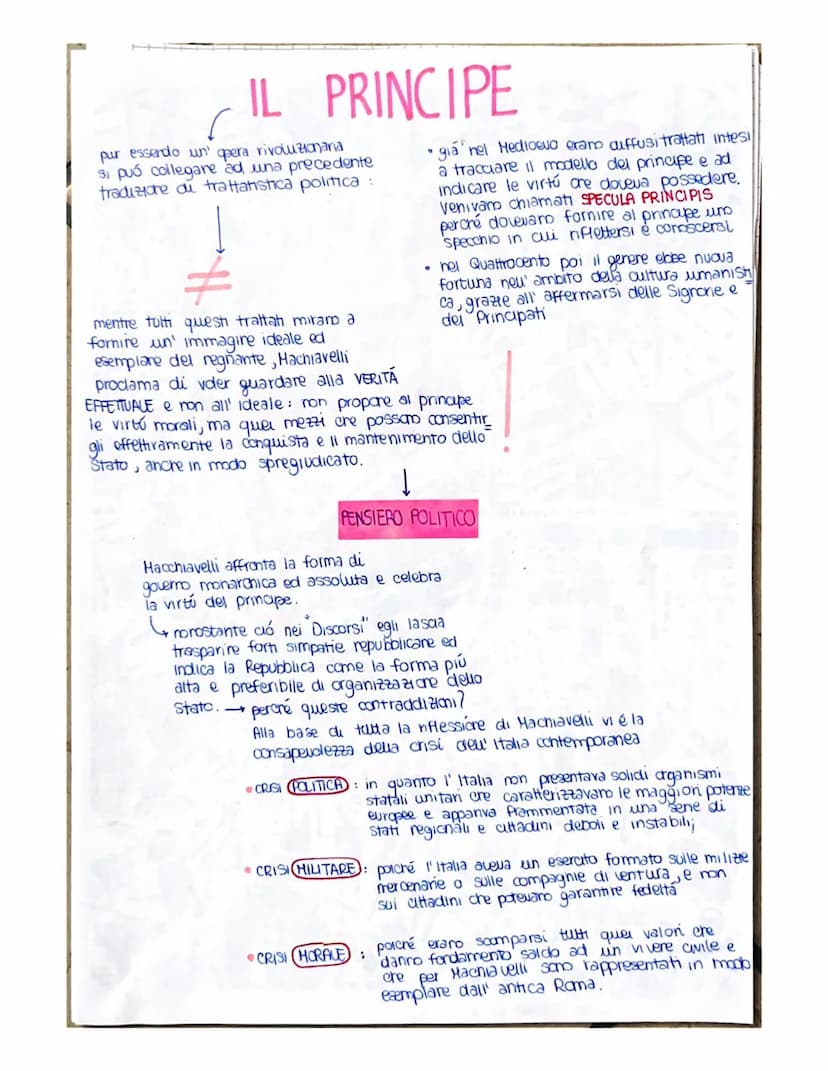 IL PRINCIPE
pur essendo un' opera rivoluzionaria
si può collegare ad una precedente
tradizione di trattatistica politica :
• già' nel Medioevo erano diffusi trattati intesi
a tracciare il modello del principe e ad
indicare le virtú che doveva possedere.
Venivano chiamati SPECULA PRINCIPIS
perché dovevano fornire al principe uno
specchio in cui riflettersi e conoscersi
• nel Quattrocento poi il genere ebbe nuova
fortuna nell' ambito della cultura umanisti
ca, grazie all' affermarsi delle Signorie e
dei Principati
≠
mentre tutti questi trattati mirano a
fornire un' immagine ideale ed
esemplare del regnante, Machiavelli
proclama di voler guardare alla VERITÁ
EFFETTUALE e non all' ideale: non propone al principe
le virtú morali, ma quei mezzi che possano consentir
gli effettivamente la conquista e il mantenimento dello
Stato, anche in modo spregiudicato.
!
PENSIERO POLITICO
Macchiavelli affronta la forma di
governo monarchica ed assoluta e celebra
la virtú del principe.
nonostante ció nei "Discorsi" egli lascia
trasparire forti simpatie repubblicane ed
indica la Repubblica come la forma piú
alta e preferibile di organizzazione dello
Stato. → perché queste contraddizioni?
Alla base di tutta la riflessione di Machiavelli vi é la
consapevolezza della crisi dell' Italia contemporanea
• CRISI POLITICA : in quanto l' Italia non presentava solidi organismi
statali unitari che caratterizzavano le maggiori potenze
europee e appariva frammentata in una serie di
stati regionali e cittadini deboli e instabili;
• CRISI MILITARE : poiché l'Italia aveva un esercito formato sulle milizie
mercenarie o sulle compagnie di ventura, e non
sui cittadini che potevano garantire fedeltà
• CRISI MORALE : poiché erano scomparsi tutti quei valori che
danno fondamento saldo ad un vivere civile e
che per Machiavelli sono rappresentati in modo
esemplare dall' antica Roma.